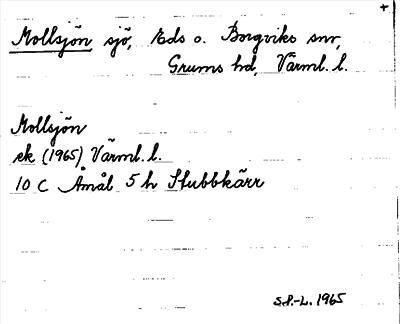 +
Mollsjön sjö, Eds o. Borgviks snr,
Grums hd, Värml. l.
Mollsjön
ek (1965) Värml. l.
10 C Åmål 5 h Stubbkärr
S.P.-L. 1965